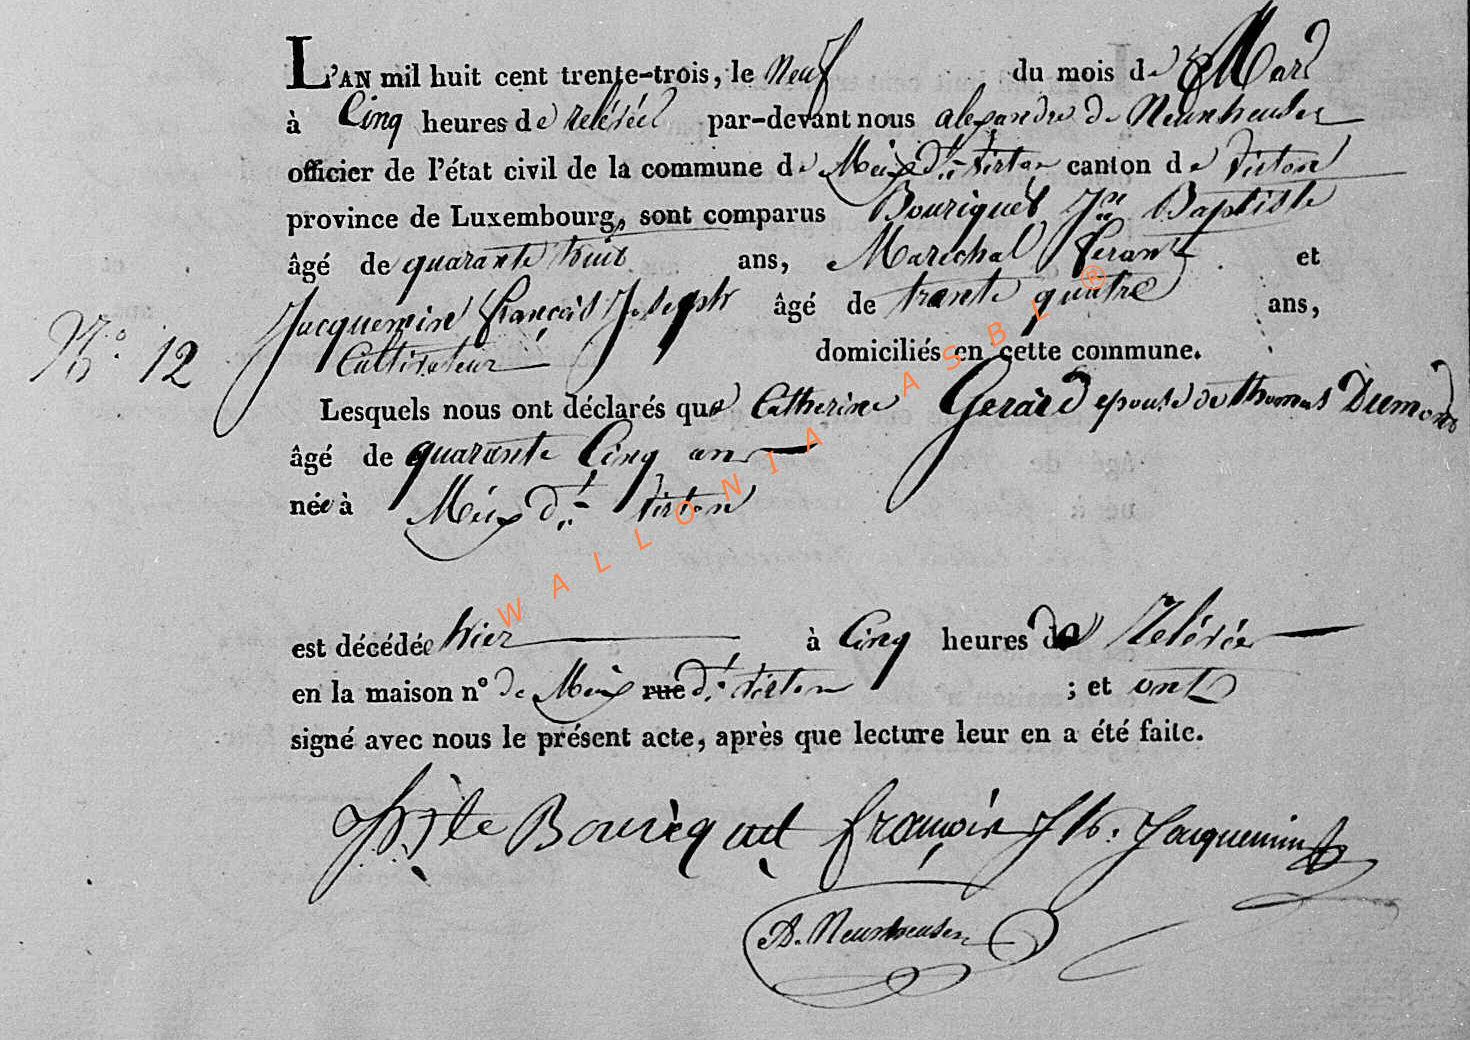 L'AN mil huit cent trente-trois, le Neuf du mois de Mars
à Cinq heures de relévée par-devant nous alexandre de Neunheuser
officier de l'état civil de la commune de Meix dt. virton canton de virton
province de Luxembourg, sont comparus Bouriquet Jn Baptiste
âgé de quarante huit ans, Marechal ferant et
Jacquemin François Joseph âgé de trente quatre ans,
N.o 12
Cultivateur domiciliés en cette commune.
Lesquels nous ont déclarés que Catherine Gerard epouse de thomas Dumond
âgé de quarante Cinq ans
née à Meix dt virton
est décédée hier à Cinq heures de relévée
en la maison n° de Meix rue dt virton ; et ont
signé avec nous le présent acte, après que lecture leur en a été faite.
Bouriquet françois Jh. Jacquemin
A. Neunheuser
WALLONIA ASBL ®